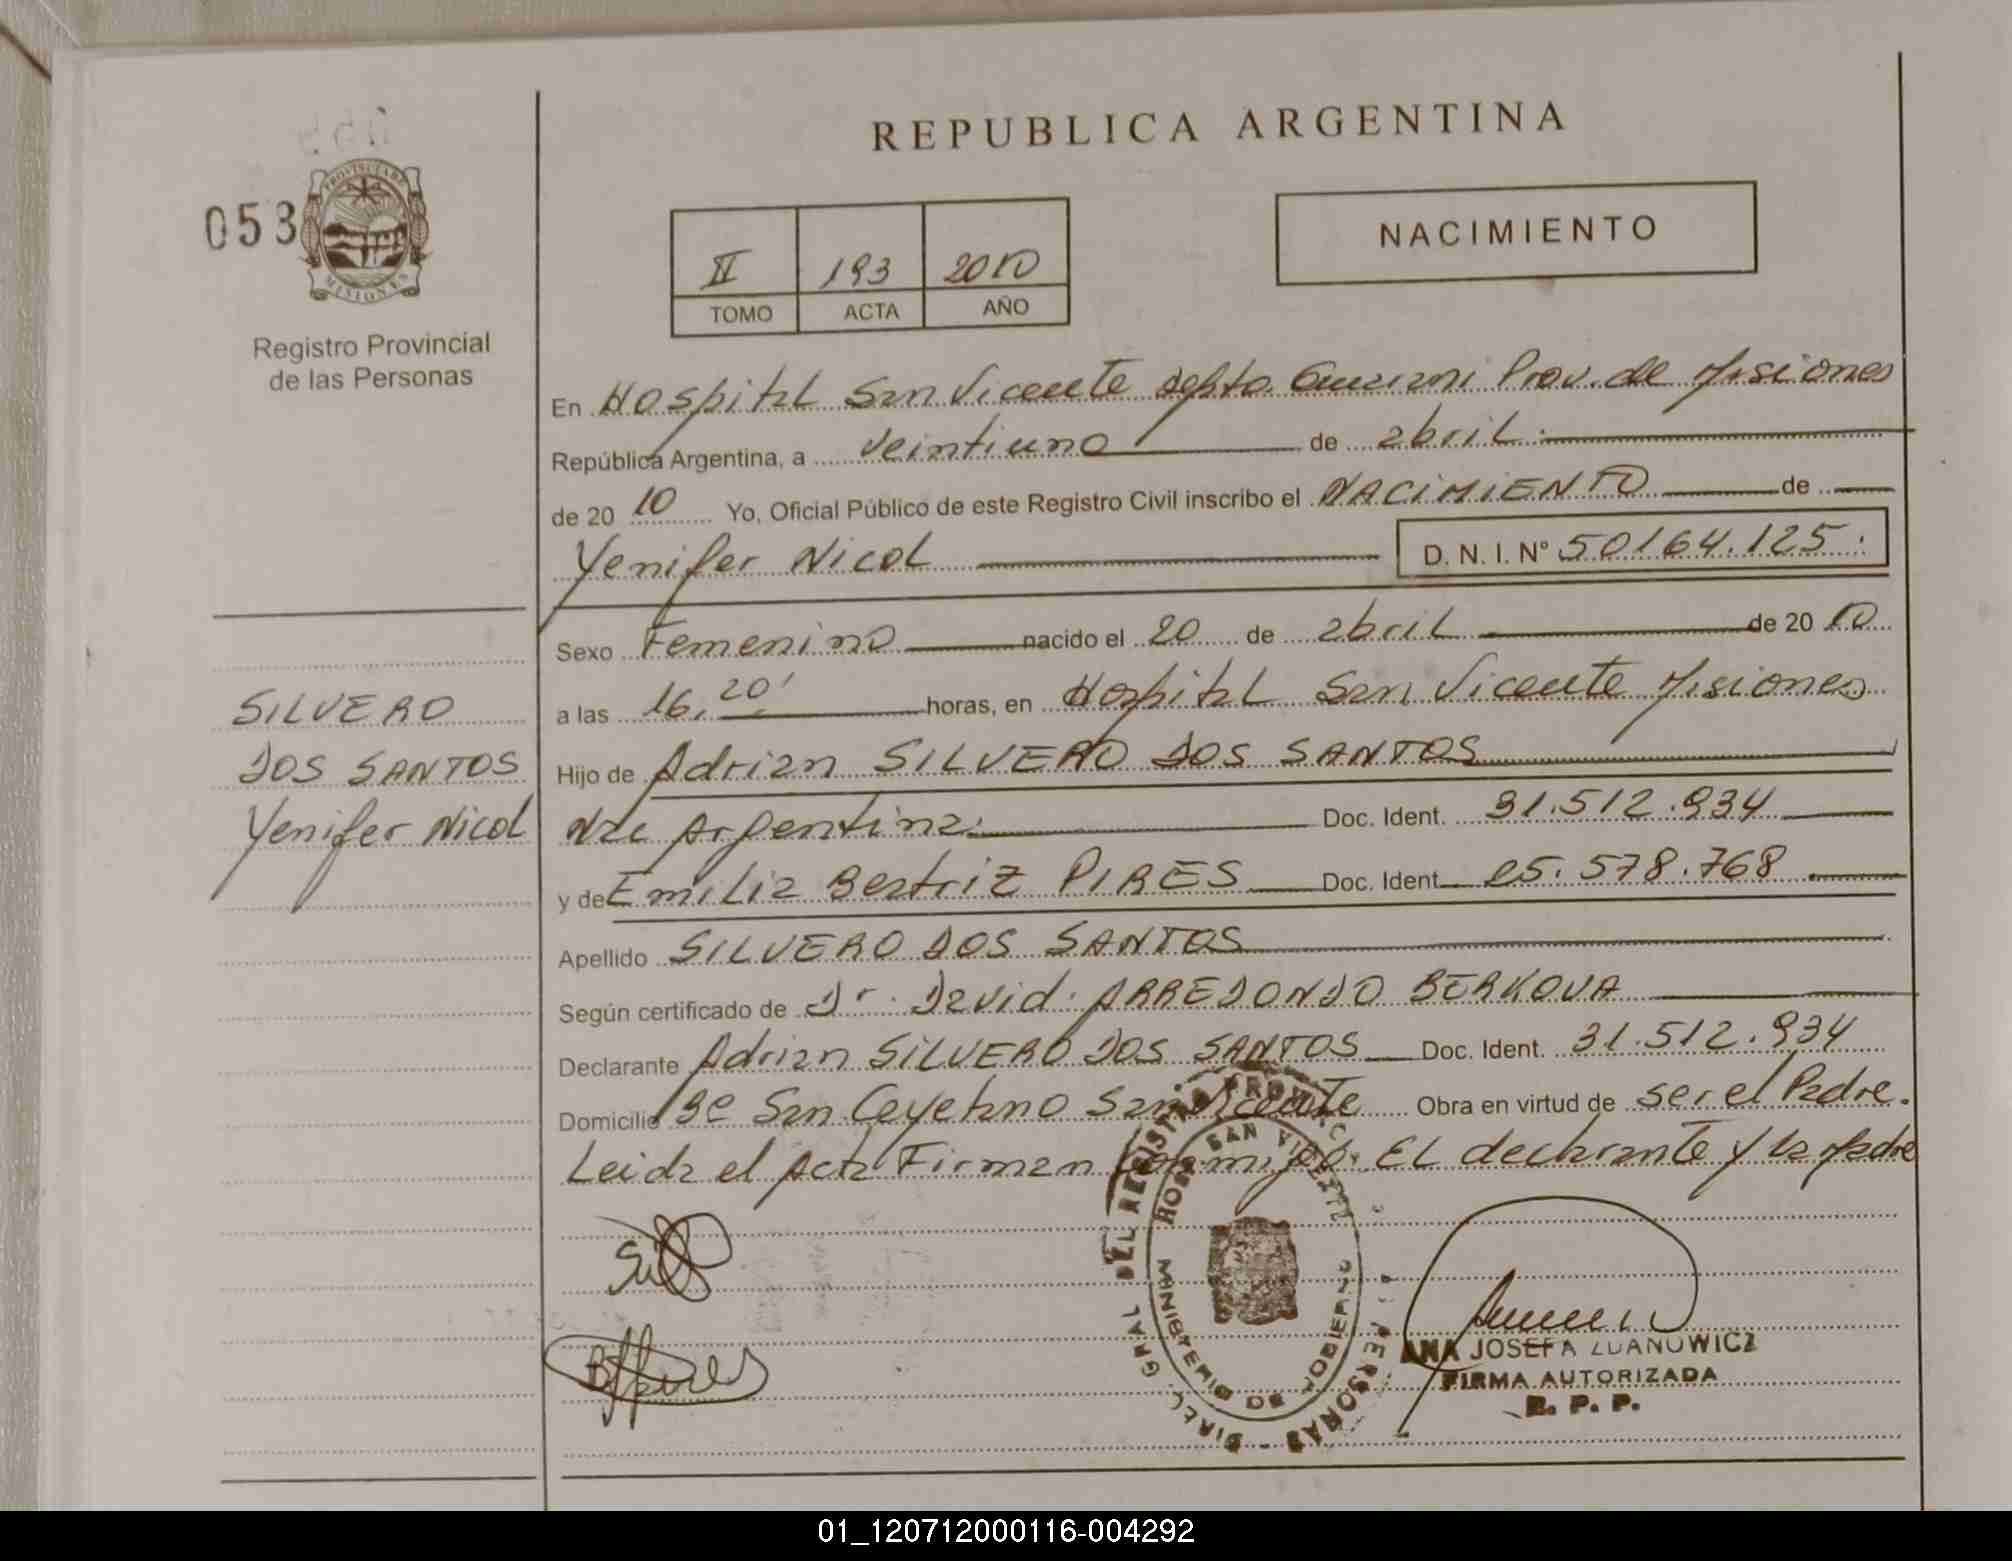 REPUBLICA ARGENTINA
053
PROVINCIA DE
MISIONES
Registro Provincial
de las Personas
II 193 2010
TOMO ACTA AÑO
NACIMIENTO
En Hospital San Vicente Depto. Guarani Prov. de Misiones
República Argentina, a veintiuno de abril
de 20 10 Yo, Oficial Público de este Registro Civil inscribo el NACIMIENTO de
Yenifer Nicol D. N. I. N° 50164.125.
Sexo Femenino nacido el 20 de abril de 20 10
a las 16,20' horas, en Hospital San Vicente Misiones
Hijo de Adrian SILVERO DOS SANTOS
Nac Argentina. Doc. Ident. 31.512.934
y de Emilia Beatriz PIRES Doc. Ident. 25.578.768
Apellido SILVERO DOS SANTOS
Según certificado de Dr. David ARREDONDO BERKOVA
Declarante Adrian SILVERO DOS SANTOS Doc. Ident. 31.512.934
Domicilio Bº San Cayetano San Vicente Obra en virtud de ser el Padre.
Leida el Acta Firman Conmigo. El declarante y la Madre
SILVERO
DOS SANTOS
Yenifer Nicol
DIREC. GRAL DEL REGISTRO PERSONAS
SAN VICENTE
MINISTERIO DE GOBIERNO
ANA JOSEFA LUANOWICZ
FIRMA AUTORIZADA
R. P. P.
01_120712000116-004292